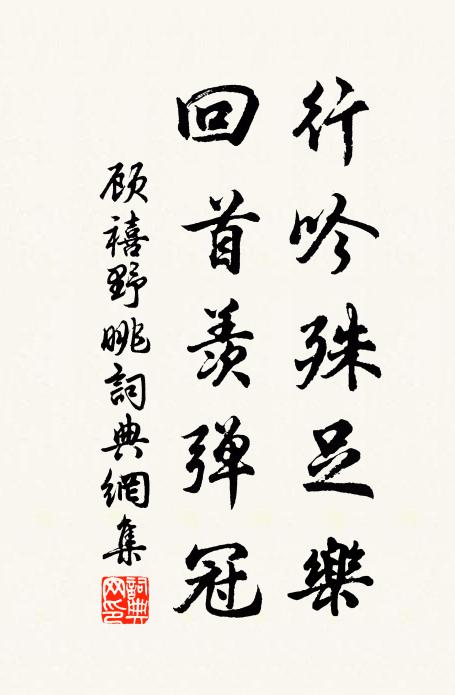 行吟殊足樂
回首羨彈冠
顾禧野眺詞典網集
詞典网印